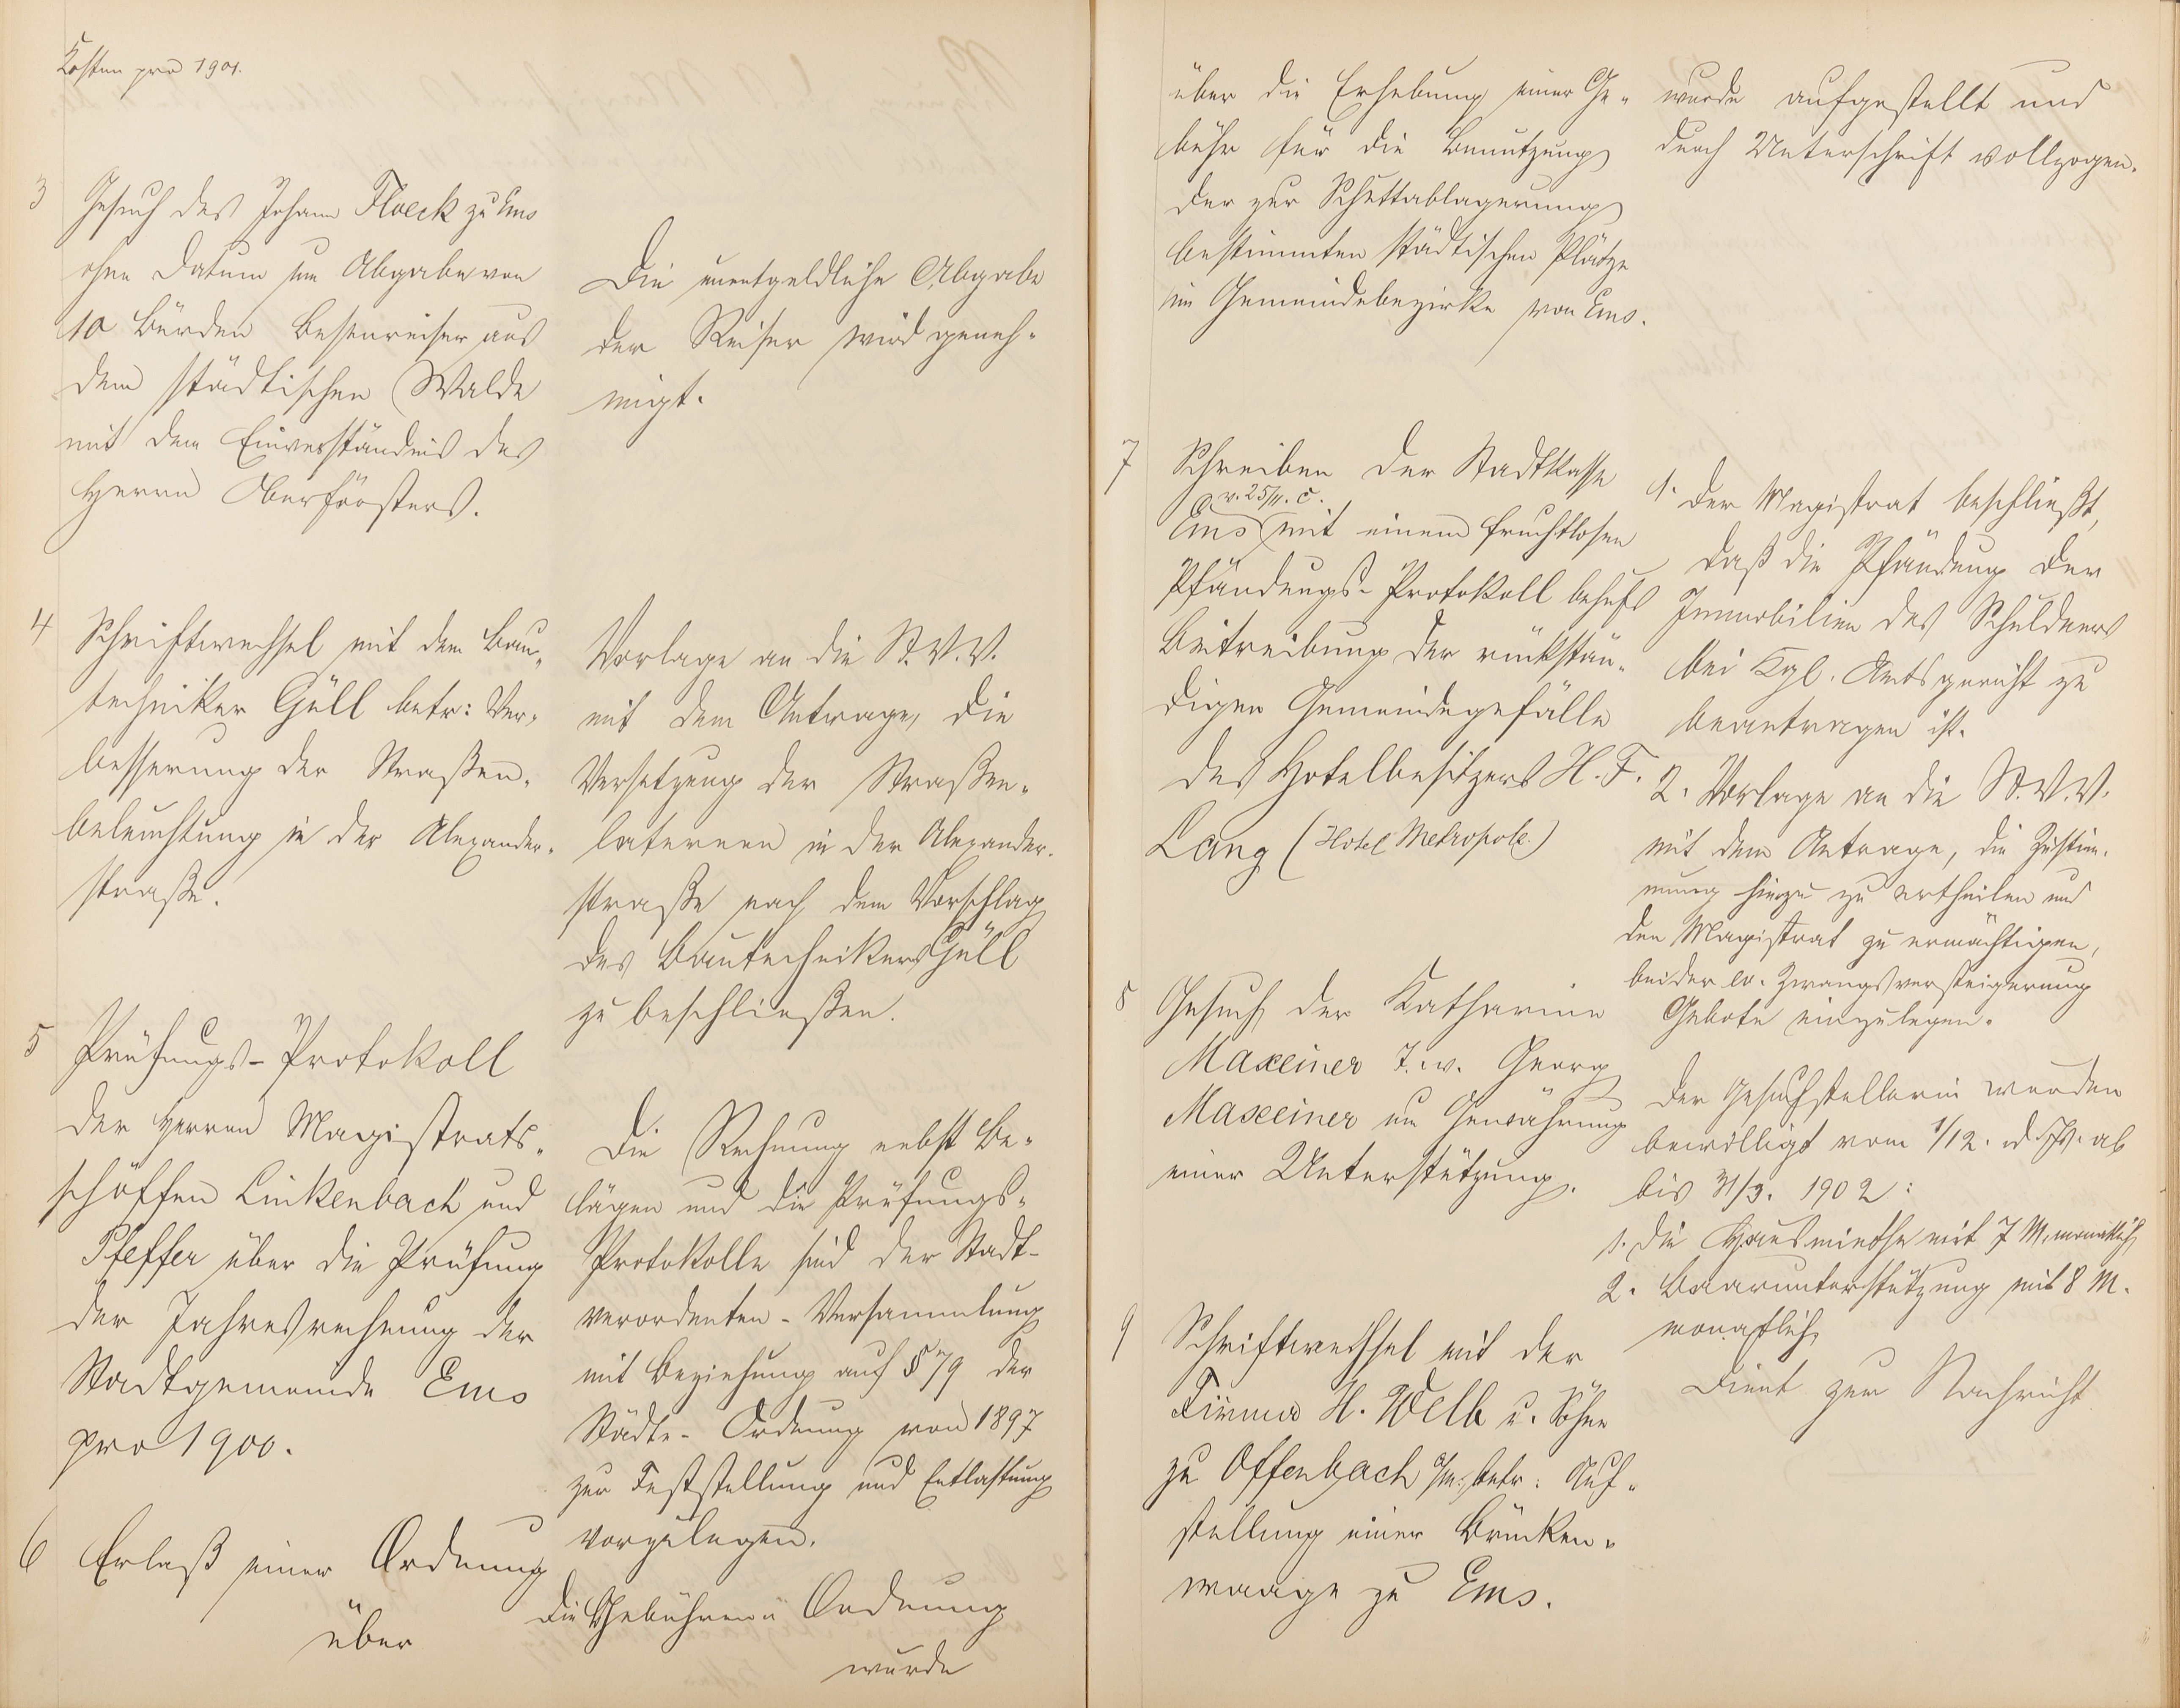 Kosten pro 1901.
3
Gesuch des Johann Floeck zu Ems
ohne Datum um Abgabe von
10 Bürden Besenreiser aus
dem städtischen Walde
mit dem Einverständnis des
Herrn Oberförsters.
Die unentgeldliche Abgabe
der Reiser wird geneh-
migt.
4
Schriftwechsel mit dem Bau-
techniker Güll betr: Ver-
besserung der Straßen-
beleuchtung in der Alexander-
straße.
Vorlage an die St.V.V.
mit dem Antrage, die
Versetzung der Straßen-
laternen in der Alexander-
straße nach dem Vorschlag
des Bautechnikers Güll
zu beschließen.
5
Prüfungs-Protokoll
der Herren Magistrats-
schöffen Linkenbach und
Pfeffer über die Prüfung
der Jahresrechnung der
Stadtgemeinde Ems
pro 1900.
Die Rechnung nebst Be-
lägen und die Prüfungs-
Protokolle sind der Stadt-
verordneten-Versammlung
mit Beziehung auf § 79 der
Städte-Ordnung von 1897
zur Feststellung und Entlastung
vorzulegen.
6
Erlaß einer Ordnung
über
Die Gebühren-Ordnung
wurde
über die Erhebung einer Ge-
bühr für die Benutzung
der zur Schuttablagerung
bestimmten städtischen Plätze
im Gemeindebezirke von Ems.
wurde aufgestellt und
durch Unterschrift vollzogen.
7
Schreiben der Stadtkasse
v. 25/11. c.
Ems mit einem fruchtlosen
Pfändungs-Protokoll behufs
Beitreibung der rückstän-
digen Gemeindegefälle
des Hotelbesitzers H. F.
Lang (Hotel Metropole.)
1. Der Magistrat beschließt,
daß die Pfändung der
Immobilien des Schuldners
bei Kgl. Amtsgericht zu
beantragen ist.
2. Vorlage an die St.V.V.
mit dem Antrage, die Zustim-
mung hierzu zu ertheilen und
den Magistrat zu ermächtigen,
bei der ev. Zwangsversteigerung
Gebote einzulegen.
8
Gesuch der Katharine
Maxeiner T. v. Georg
Maxeiner um Gewährung
einer Unterstützung.
Der Gesuchstellerin werden
bewilligt vom 1/12. d. Js. ab
bis 31/3. 1902:
1. Die Hausmiethe mit 7 M. monatlich
2. Baarunterstützung mit 8 M.
monatlich
9
Schriftwechsel mit der
Firma H. Welb u. Söhne
zu Offenbach a/m. betr: Auf-
stellung einer Brücken-
waage zu Ems.
Dient zur Nachricht